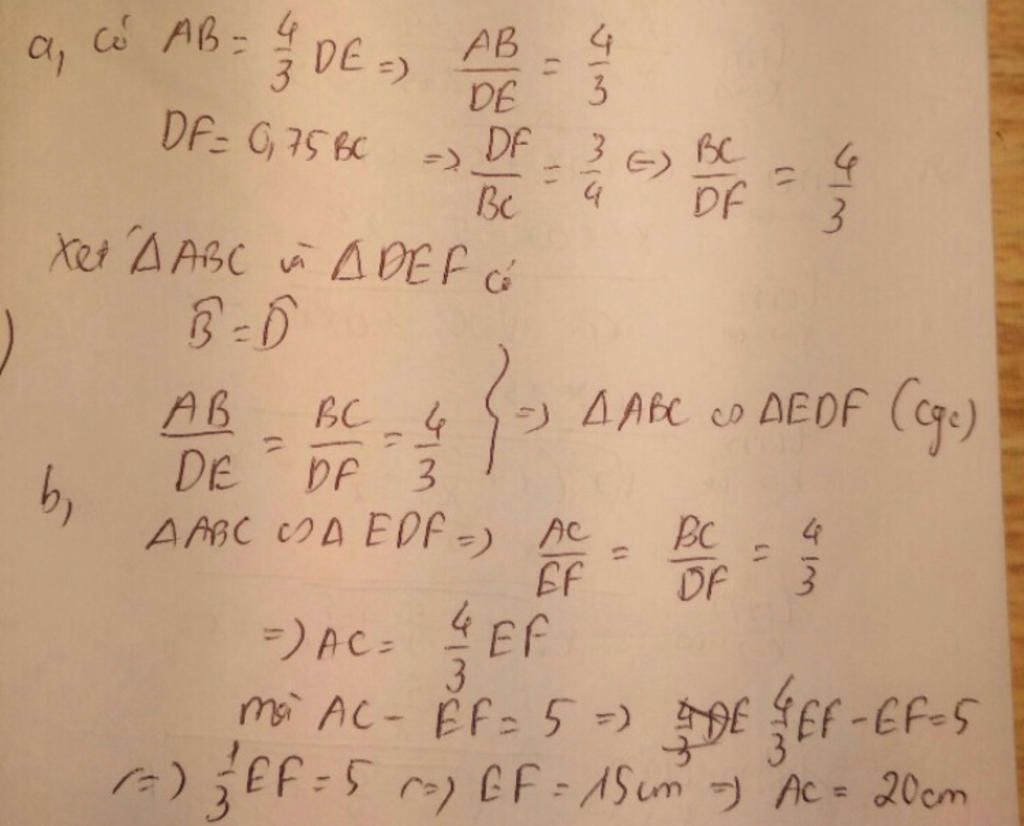 a, có AB = 4/3 DE => AB/DE = 4/3
DF = 0,75 BC => DF/BC = 3/4 <=> BC/DF = 4/3
Xét ΔABC và ΔDEF có
B̂ = D̂
AB/DE = BC/DF = 4/3 } => ΔABC ∽ ΔEDF (cgc)
b,
ΔABC ∽ Δ EDF => AC/EF = BC/DF = 4/3
=> AC = 4/3 EF
mà AC - EF = 5 => 4/3 EF - EF = 5
<=> 1/3 EF = 5 <=> EF = 15cm => AC = 20cm